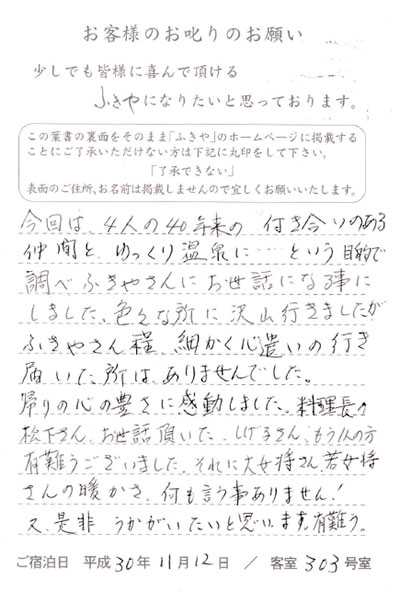 お客様のお叱りのお願い
少しでも皆様に喜んで頂ける
ふきやになりたいと思っております。
この葉書の裏面をそのまま「ふきや」のホームページに掲載する
ことにご了承いただけない方は下記に丸印をして下さい。
「了承できない」
表面のご住所、お名前は掲載しませんので宜しくお願いいたします。
今回は、4人の40年来の付き合いのある
仲間と、ゆっくり温泉に…という目的で
調べふきやさんにお世話になる事に
しました。色々な所に沢山行きましたが
ふきやさん程、細かく心遣いの行き
届いた所は、ありませんでした。
帰りの心の豊さに感動しました。料理長
松下さん、お世話頂いた、しげるさん、もう1人の方
有難うございました。それに大女将さん、若女将
さんの暖かさ、何も言う事ありません!
又、是非うかがいたいと思います。有難う。
ご宿泊日 平成30年11月12日 / 客室303号室